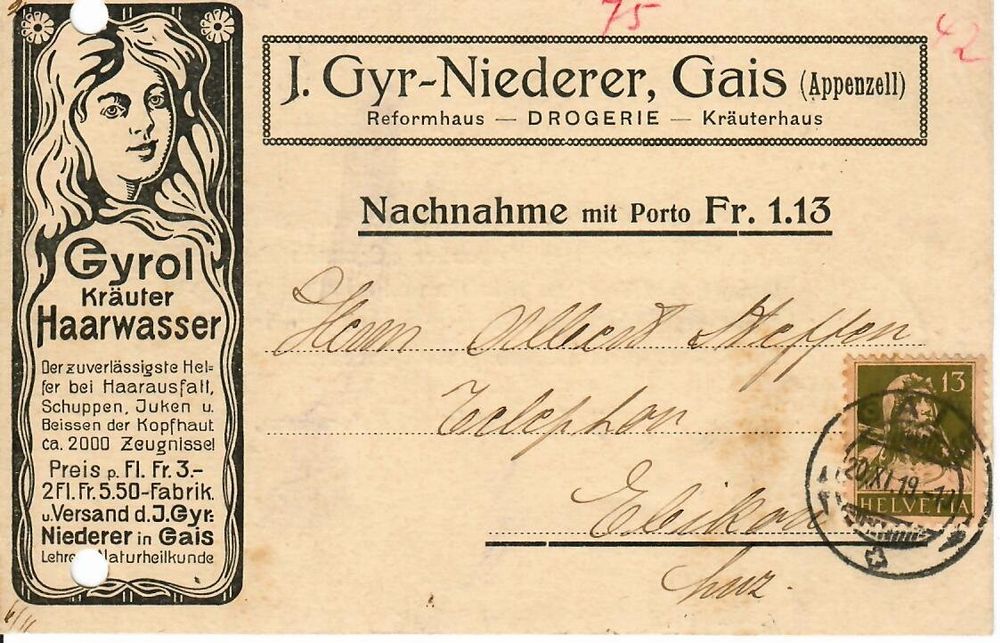 75
42
J. Gyr-Niederer, Gais (Appenzell)
Reformhaus — DROGERIE — Kräuterhaus
Nachnahme mit Porto Fr. 1.13
Herrn Albert Steffen
Telephon
Ebikon
Luz.
13
HELVETIA
GAIS
20.XI.19.-11
Gyrol
Kräuter
Haarwasser
Der zuverlässigste Hel-
fer bei Haarausfall,
Schuppen, Juken u.
Beissen der Kopfhaut
ca. 2000 Zeugnisse!
Preis p. Fl. Fr. 3.-
2 Fl. Fr. 5.50-Fabrik.
u. Versand d. J. Gyr-
Niederer in Gais
Naturheilkunde